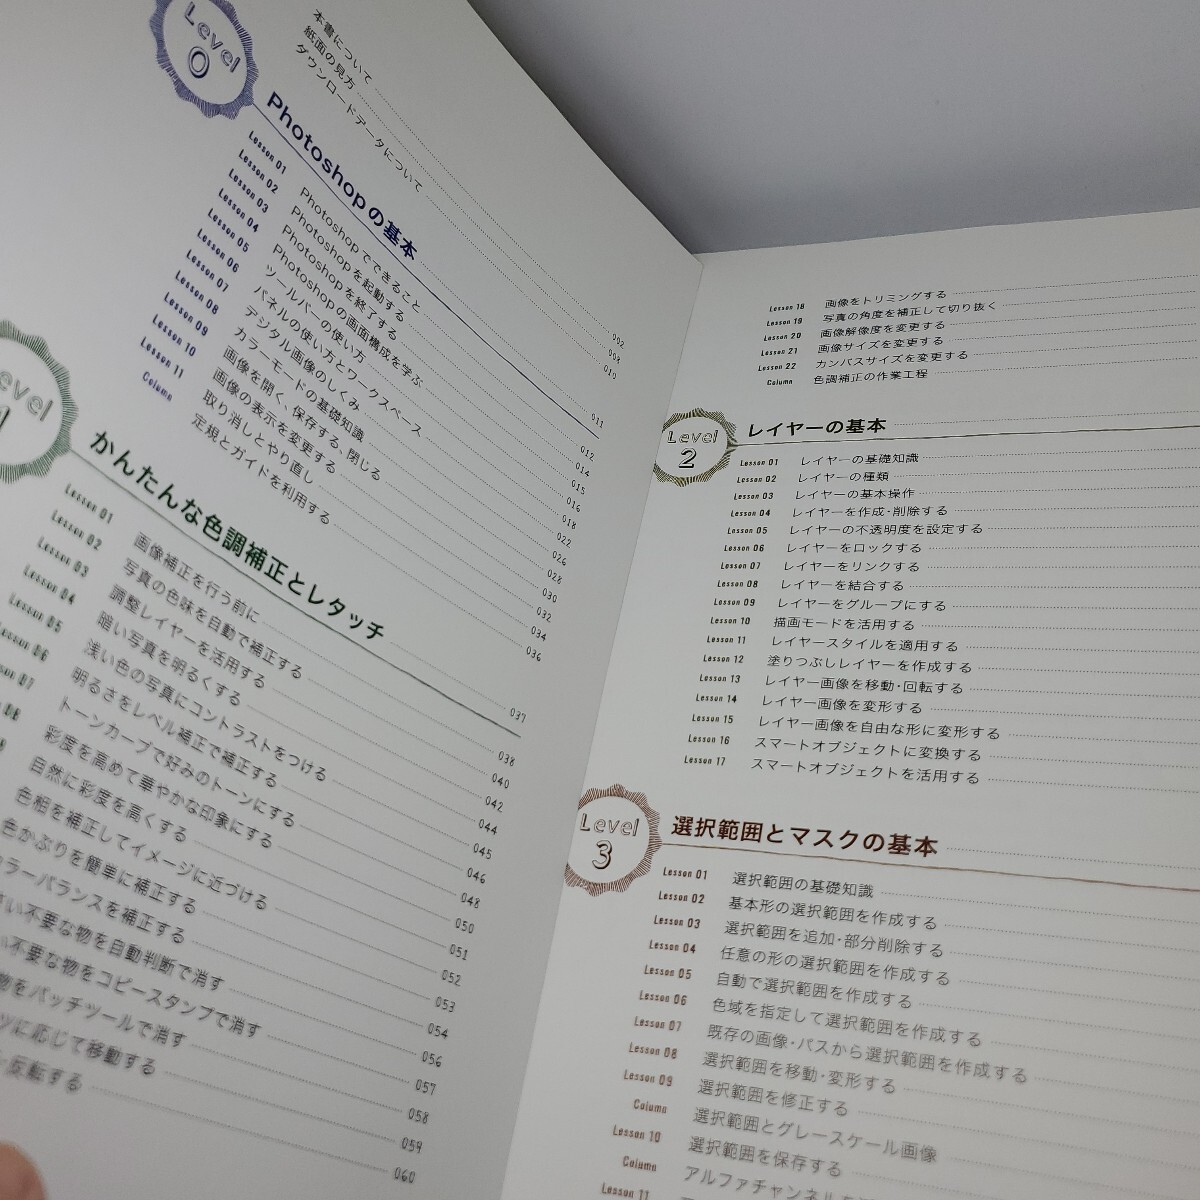 Level 0
本書について 002
紙面の見方 008
ダウンロードデータについて 010
Photoshopの基本 011
Lesson 01 Photoshopでできること 012
Lesson 02 Photoshopを起動する 014
Lesson 03 Photoshopを終了する 015
Lesson 04 Photoshopの画面構成を学ぶ 016
Lesson 05 ツールバーの使い方 018
Lesson 06 パネルの使い方とワークスペース 022
Lesson 07 デジタル画像のしくみ 026
Lesson 08 カラーモードの基礎知識 028
Lesson 09 画像を開く、保存する、閉じる 030
Lesson 10 画像の表示を変更する 032
Lesson 11 取り消しとやり直し 034
Column 定規とガイドを利用する 036
Level 1
かんたんな色調補正とレタッチ 037
Lesson 01 画像補正を行う前に 038
Lesson 02 写真の色味を自動で補正する 040
Lesson 03 調整レイヤーを活用する 042
Lesson 04 暗い写真を明るくする 044
Lesson 05 浅い色の写真にコントラストをつける 045
Lesson 06 明るさをレベル補正で補正する 046
トーンカーブで好みのトーンにする 048
彩度を高めて華やかな印象にする 050
自然に彩度を高くする 051
色相を補正してイメージに近づける 052
色かぶりを簡単に補正する 053
ラーバランスを補正する 054
さい不要な物を自動判断で消す 056
い不要な物をコピースタンプで消す 057
物をパッチツールで消す 058
ツに応じて移動する 059
反転する 060
Lesson 18 画像をトリミングする
Lesson 19 写真の角度を補正して切り抜く
Lesson 20 画像解像度を変更する
Lesson 21 画像サイズを変更する
Lesson 22 カンバスサイズを変更する
Column 色調補正の作業工程
Level 2
レイヤーの基本
Lesson 01 レイヤーの基礎知識
Lesson 02 レイヤーの種類
Lesson 03 レイヤーの基本操作
Lesson 04 レイヤーを作成・削除する
Lesson 05 レイヤーの不透明度を設定する
Lesson 06 レイヤーをロックする
Lesson 07 レイヤーをリンクする
Lesson 08 レイヤーを結合する
Lesson 09 レイヤーをグループにする
Lesson 10 描画モードを活用する
Lesson 11 レイヤースタイルを適用する
Lesson 12 塗りつぶしレイヤーを作成する
Lesson 13 レイヤー画像を移動・回転する
Lesson 14 レイヤー画像を変形する
Lesson 15 レイヤー画像を自由な形に変形する
Lesson 16 スマートオブジェクトに変換する
Lesson 17 スマートオブジェクトを活用する
Level 3
選択範囲とマスクの基本
Lesson 01 選択範囲の基礎知識
Lesson 02 基本形の選択範囲を作成する
Lesson 03 選択範囲を追加・部分削除する
Lesson 04 任意の形の選択範囲を作成する
Lesson 05 自動で選択範囲を作成する
Lesson 06 色域を指定して選択範囲を作成する
Lesson 07 既存の画像・パスから選択範囲を作成する
Lesson 08 選択範囲を移動・変形する
Lesson 09 選択範囲を修正する
Column 選択範囲とグレースケール画像
Lesson 10 選択範囲を保存する
Column アルファチャンネルを
Lesson 11